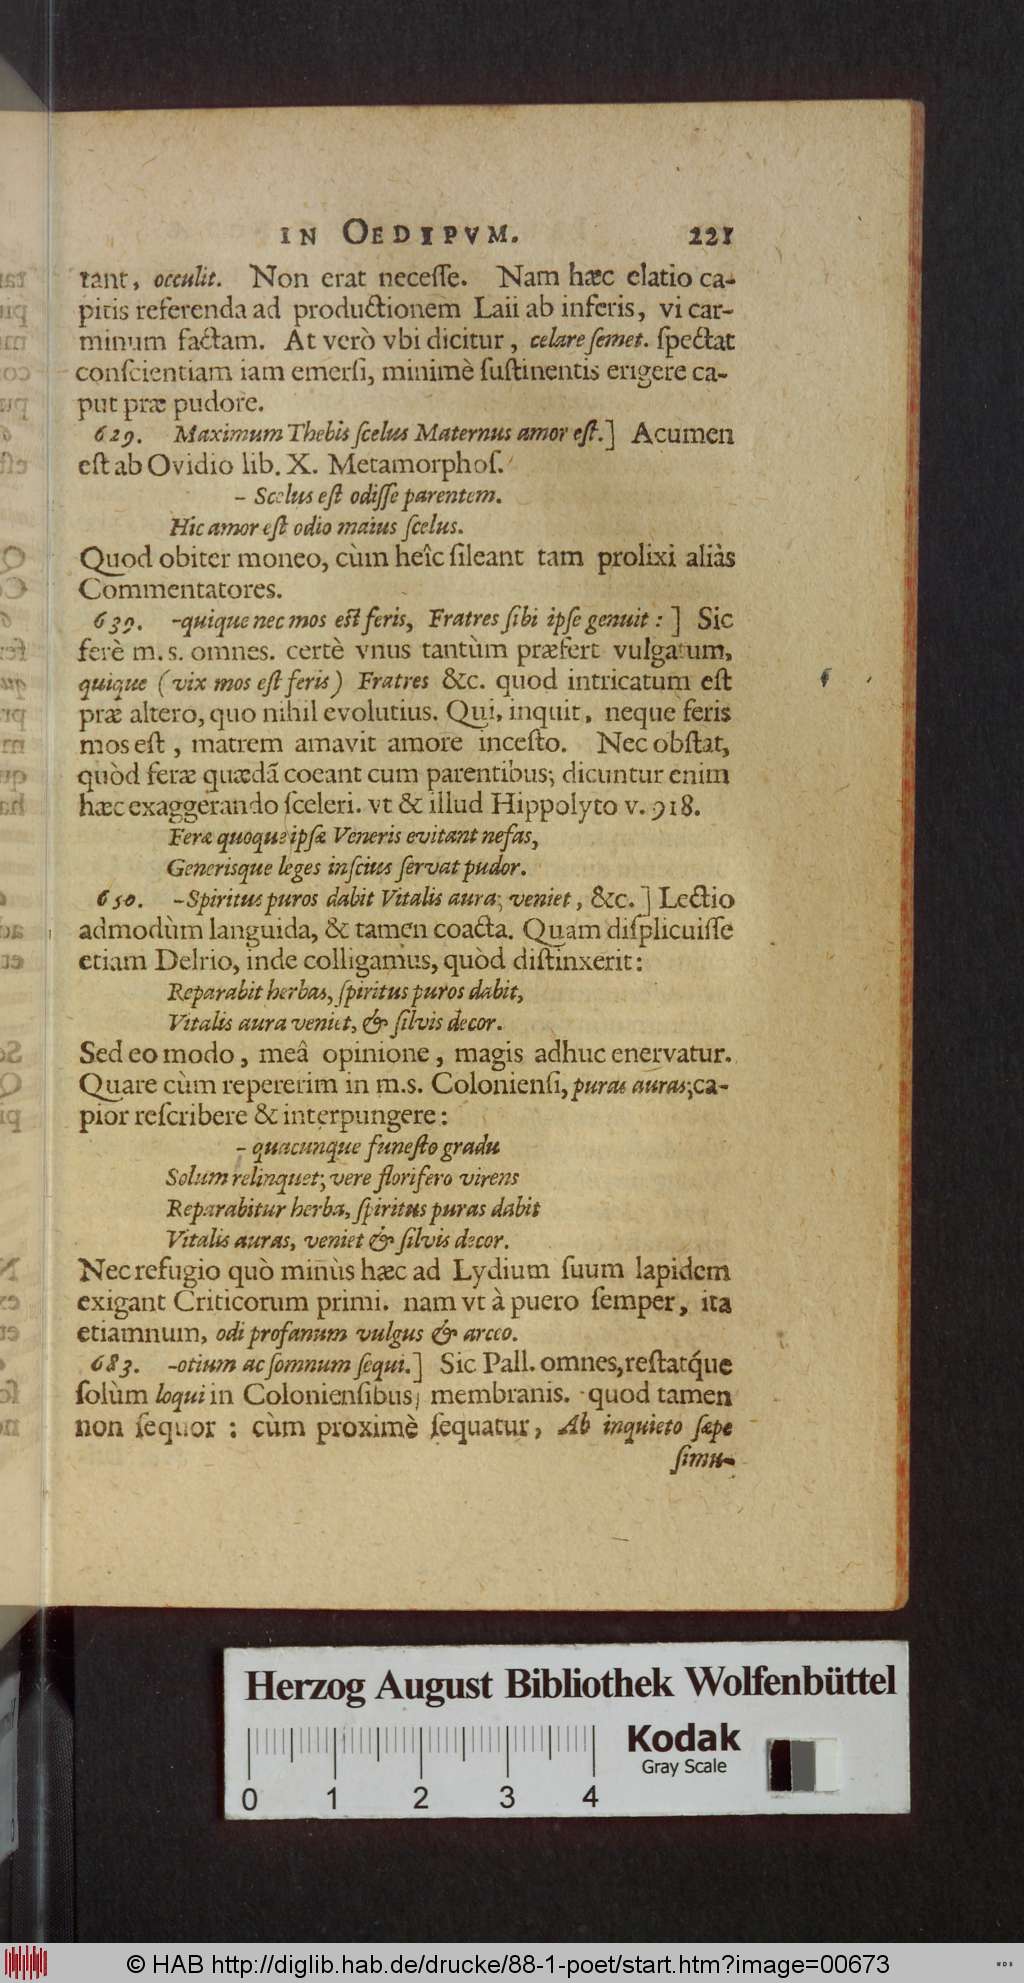 IN OEDIPVM. 221
tant, occulit. Non erat neceſſe. Nam hæc elatio ca-
pitis referenda ad productionem Laii ab inferis, vi car-
minum factam. At verò vbi dicitur, celare ſemet. ſpectat
conſcientiam iam emerſi, minimè ſuſtinentis erigere ca-
put præ pudore.
629. Maximum Thebis ſcelus Maternus amor eſt.] Acumen
eſt ab Ovidio lib. X. Metamorphoſ.
- Scelus eſt odiſſe parentem.
Hic amor eſt odio maius ſcelus.
Quod obiter moneo, cùm heîc ſileant tam prolixi aliàs
Commentatores.
639. -quique nec mos eſt feris, Fratres ſibi ipſe genuit: ] Sic
ferè m. s. omnes. certè vnus tantùm præfert vulgatum,
quique (vix mos eſt feris) Fratres &c. quod intricatum eſt
præ altero, quo nihil evolutius. Qui, inquit, neque feris
mos eſt, matrem amavit amore inceſto. Nec obſtat,
quòd feræ quædã coeant cum parentibus; dicuntur enim
hæc exaggerando ſceleri. vt & illud Hippolyto v. 918.
Feræ quoque ipſæ Veneris evitant nefas,
Generisque leges inſcius ſervat pudor.
650. -Spiritus puros dabit Vitalis aura; veniet, &c. ] Lectio
admodùm languida, & tamen coacta. Quam diſplicuiſſe
etiam Delrio, inde colligamus, quòd diſtinxerit:
Reparabit herbas, ſpiritus puros dabit,
Vitalis aura veniet, & ſilvis decor.
Sed eo modo, meâ opinione, magis adhuc enervatur.
Quare cùm repererim in m.s. Colonienſi, puras auras; ca-
pior reſcribere & interpungere:
- quacunque funeſto gradu
Solum relinquet; vere florifero virens
Reparabitur herba, ſpiritus puras dabit
Vitalis auras, veniet & ſilvis decor.
Nec refugio quò minùs hæc ad Lydium ſuum lapidem
exigant Criticorum primi. nam vt à puero ſemper, ita
etiamnum, odi profanum vulgus & arceo.
683. -otium ac ſomnum ſequi.] Sic Pall. omnes, reſtatq́ue
ſolùm loqui in Colonienſibus membranis. quod tamen
non ſequor: cùm proximè ſequatur, Ab inquieto ſæpe
ſimu-
Herzog August Bibliothek Wolfenbüttel
Kodak
Gray Scale
0 1 2 3 4
© HAB http://diglib.hab.de/drucke/88-1-poet/start.htm?image=00673